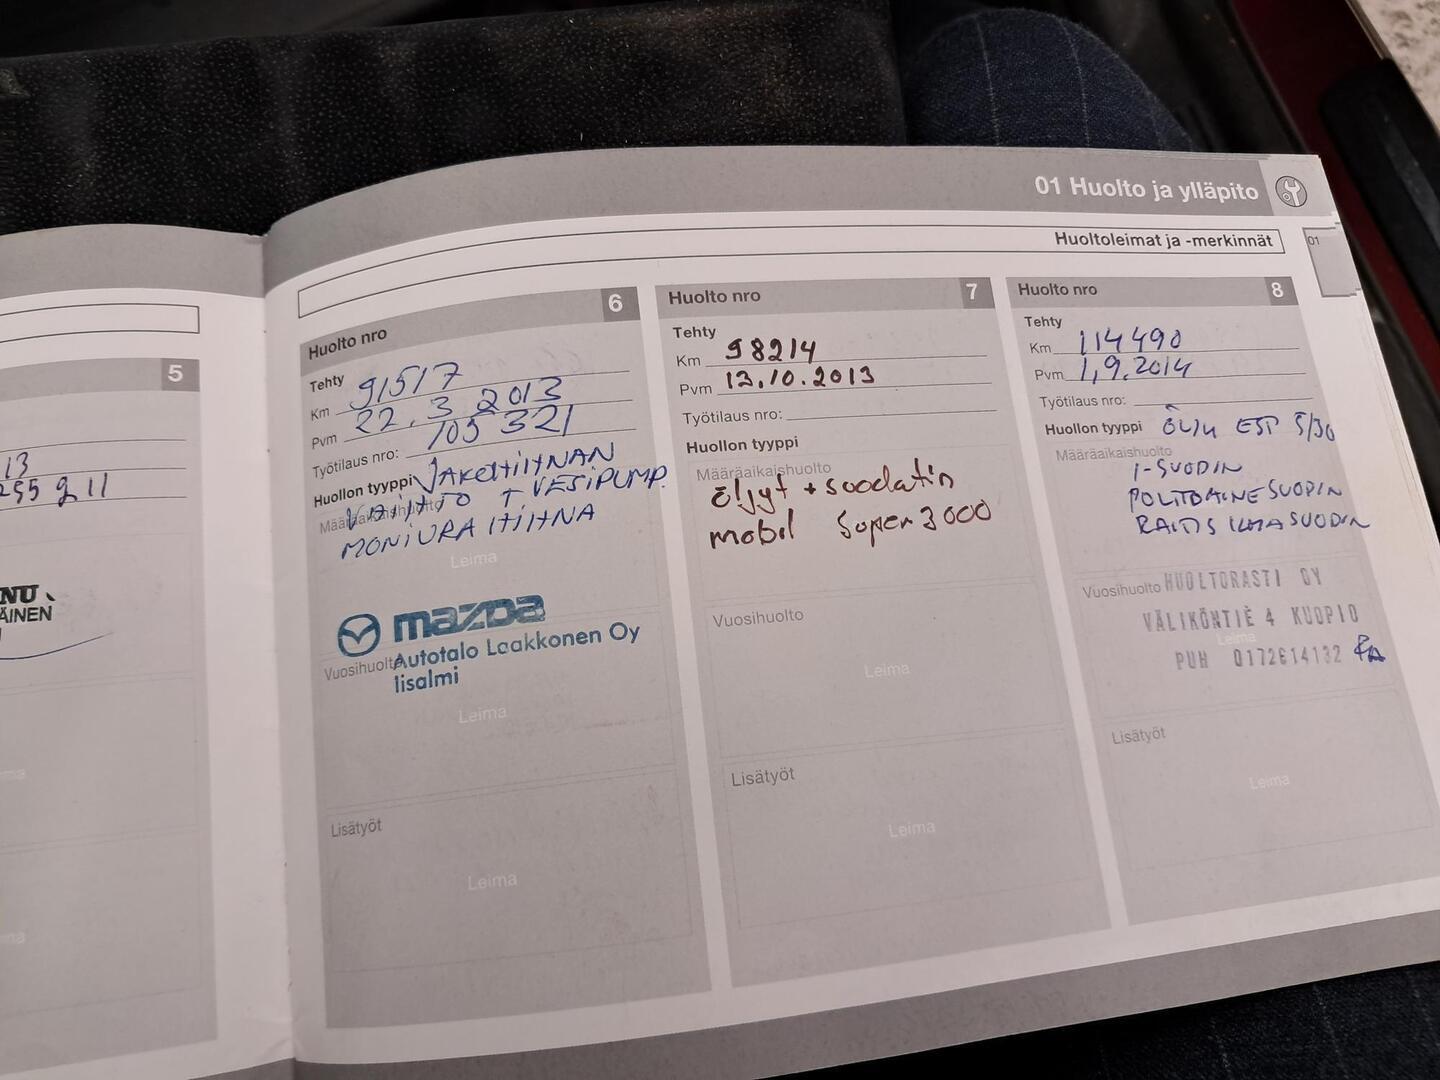 01 Huolto ja ylläpito
Huoltoleimat ja -merkinnät
01
5
13
255 911
NU
ÄINEN
Huolto nro 6
Tehty
Km 91517
Pvm 22.3 2013
Työtilaus nro: 105 321
Huollon tyyppi JAKOHIHNAN
Määräaikaishuolto
VAIHTO + VESIPUMP.
MONIURA HIHNA
Leima
mazda
Autotalo Laakkonen Oy
Iisalmi
Vuosihuolto
Leima
Lisätyöt
Leima
Huolto nro 7
Tehty
Km 98214
Pvm 13.10.2013
Työtilaus nro:
Huollon tyyppi
Määräaikaishuolto
öljyt + suodatin
mobil Super 3000
Vuosihuolto
Leima
Lisätyöt
Leima
Huolto nro 8
Tehty
Km 114490
Pvm 1.9.2014
Työtilaus nro:
Huollon tyyppi ÖLJY ESP 5/30
Määräaikaishuolto
I-SUODIN
POLTTOAINESUODIN
RAITIS ILMASUODIN
Vuosihuolto
HUOLTORASTI OY
VÄLIKÖNTIE 4 KUOPIO
Leima
PUH 0172614132
Lisätyöt
Leima